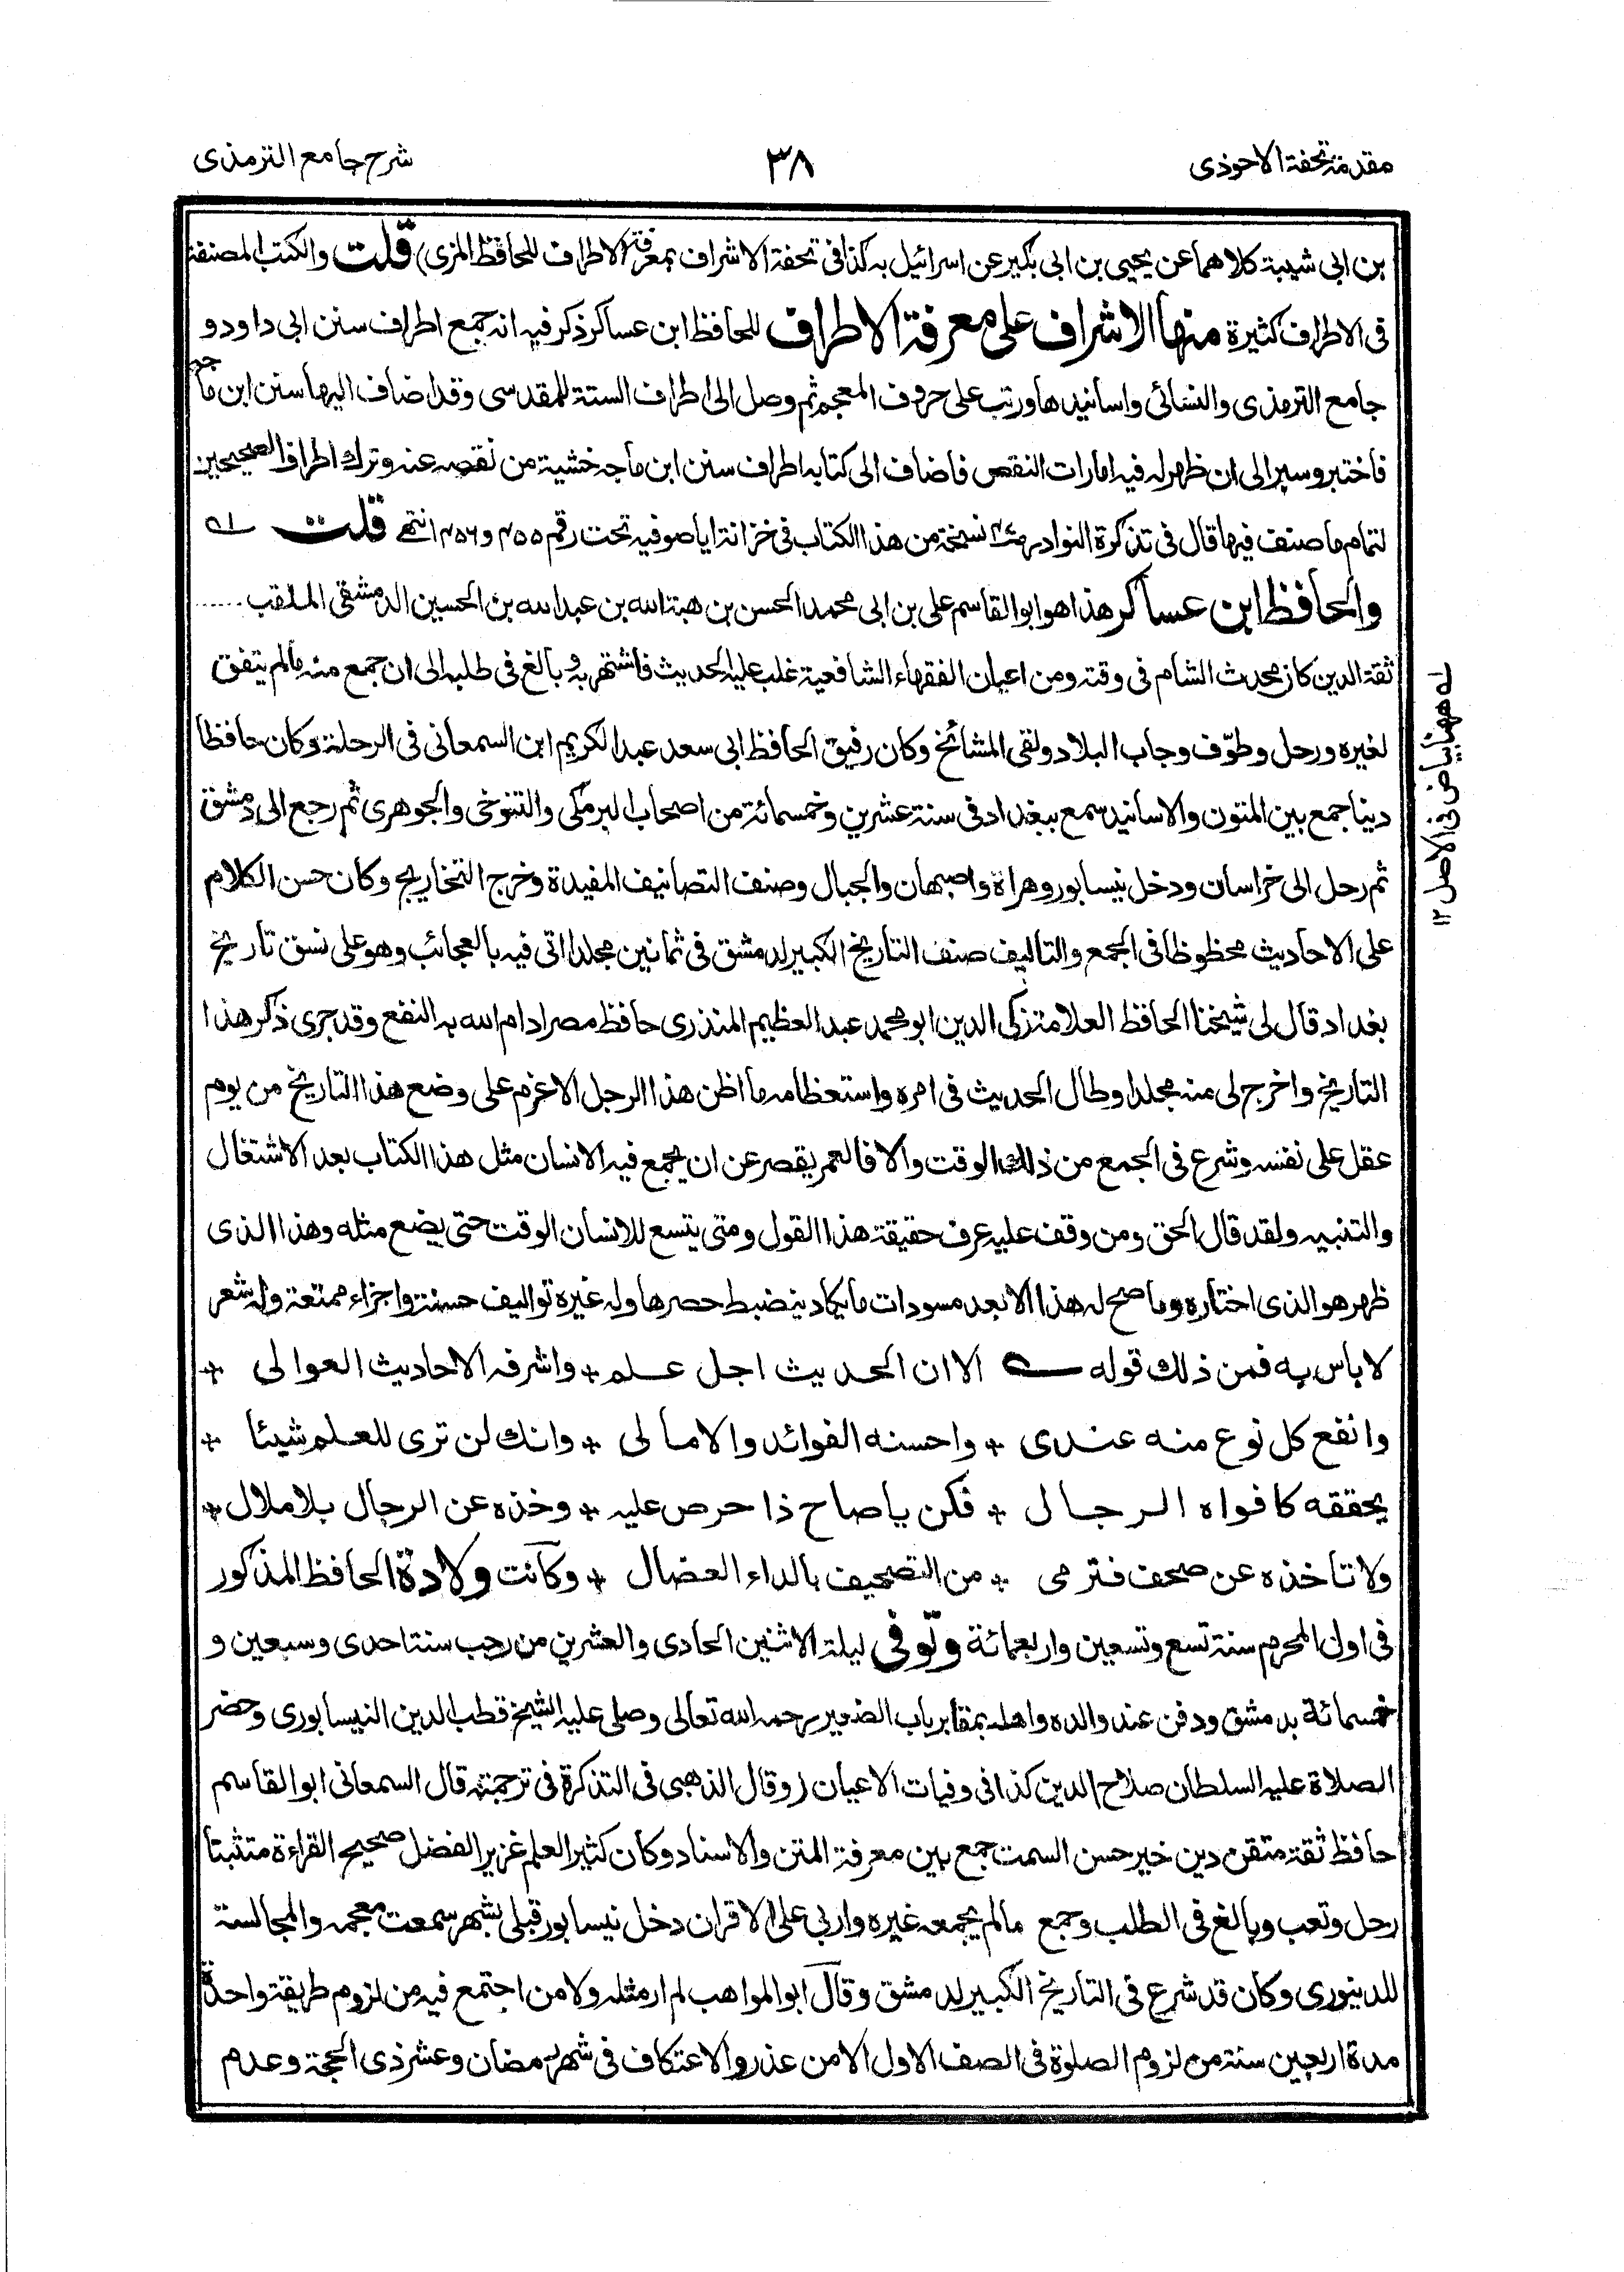 مقدمة تحفة الاحوذى
٣٨
شرح جامع الترمذى
بن ابى شيبة كلاهما عن يحيى بن ابى بكير عن اسرائيل به كذا فى تحفة الاشراف بمعرفة الاطراف للحافظ المزى) قلت والكتب المصنفة
فى الاطراف كثيرة منها الاشراف على معرفة الاطراف للحافظ ابن عساكر ذكر فيه انه جمع اطراف سنن ابى داود و
جامع الترمذى والنسائى واسانيدها ورتب على حروف المعجم ثم وصل الى اطراف الستة للمقدسى وقد اضاف اليها سنن ابن ماجه
فاختبر وسبر الى ان ظهر له فيه امارات النقص فاضاف الى كتابه اطراف سنن ابن ماجه خشية من نقصه عنه وترك اطراف الصحيحين
لتمام ما صنف فيها قال فى تذكرة النوادر نسخة من هذا الكتاب فى خزانة ايا صوفيه تحت رقم ٤٥٥ و ٤٥٦ انتهى قلت له
والحافظ ابن عساكر هذا هو ابو القاسم على بن ابى محمد الحسن بن هبة الله بن عبد الله بن الحسين الدمشقى الملقب ......
ثقة الدين كان محدث الشام فى وقته ومن اعيان الفقهاء الشافعية غلب عليه الحديث فاشتهر به وبالغ فى طلبه الى ان جمع منه مالم يتفق
لغيره ورحل وطوّف وجاب البلاد ولقى المشائخ وكان رفيق الحافظ ابى سعد عبد الكريم ابن السمعانى فى الرحلة وكان حافظا
دينا جمع بين المتون والاسانيد سمع ببغداد فى سنة عشرين وخمسمائة من اصحاب البرمكى والتنوخى والجوهرى ثم رجع الى دمشق
ثم رحل الى خراسان ودخل نيسابور وهراة واصبهان والجبال وصنف التصانيف المفيدة وخرج التخاريج وكان حسن الكلام
على الاحاديث محظوظا فى الجمع والتاليف صنف التاريخ الكبير لدمشق فى ثمانين مجلدا اتى فيه بالعجائب وهو على نسق تاريخ
بغداد قال لى شيخنا الحافظ العلامة زكى الدين ابو محمد عبد العظيم المنذرى حافظ مصر ادام الله به النفع وقد جرى ذكر هذا
التاريخ واخرج لى منه مجلدا وطال الحديث فى امره واستعظامه ما اظن هذا الرجل الا عزم على وضع هذا التاريخ من يوم
عقل على نفسه وشرع فى الجمع من ذلك الوقت والا فالعمر يقصر عن ان يجمع فيه الانسان مثل هذا الكتاب بعد الاشتغال
والتنبيه ولقد قال الحق ومن وقف عليه عرف حقيقة هذا القول ومتى يتسع للانسان الوقت حتى يضع مثله وهذا الذى
ظهر هو الذى اختاره وما صح له هذا الا بعد مسودات ما يكاد ينضبط حصرها وله غيره تواليف حسنة واجزاء ممتعة وله شعر
لا باس به فمن ذلك قوله الا ان الحديث اجل علم + واشرفه الاحاديث العوالى +
وانفع كل نوع منه عندى + واحسنه الفوائد والامالى + وانك لن ترى للعلم شيئا +
يحققه كافواه الرجال + فكن يا صاح ذا حرص عليه + وخذه عن الرجال بلا ملال +
ولا تأخذه عن صحف فترمى + من التصحيف بالداء العضال + وكانت ولادة الحافظ المذكور
فى اول المحرم سنة تسع وتسعين واربعمائة وتوفى ليلة الاثنين الحادى والعشرين من رجب سنة احدى وسبعين و
خمسمائة بدمشق ودفن عند والده واهله بمقابر باب الصغير رحمه الله تعالى وصلى عليه الشيخ قطب الدين النيسابورى وحضر
الصلاة عليه السلطان صلاح الدين كذا فى وفيات الاعيان (وقال الذهبى فى التذكرة فى ترجمته قال السمعانى ابو القاسم
حافظ ثقة متقن دين خير حسن السمت جمع بين معرفة المتن والاسناد وكان كثير العلم غزير الفضل صحيح القراءة متثبتا
رحل وتعب وبالغ فى الطلب وجمع مالم يجمعه غيره واربى على الاقران دخل نيسابور قبلى بشهر سمعت معجمه والمجالسة
للدينورى وكان قد شرع فى التاريخ الكبير لدمشق وقال ابو المواهب لم ار مثله ولا من اجتمع فيه من لزوم طريقة واحدة
مدة اربعين سنة من لزوم الصلوة فى الصف الاول الا من عذر والاعتكاف فى شهر رمضان وعشر ذى الحجة وعدم
له ههنا بياض فى الاصل ١٢